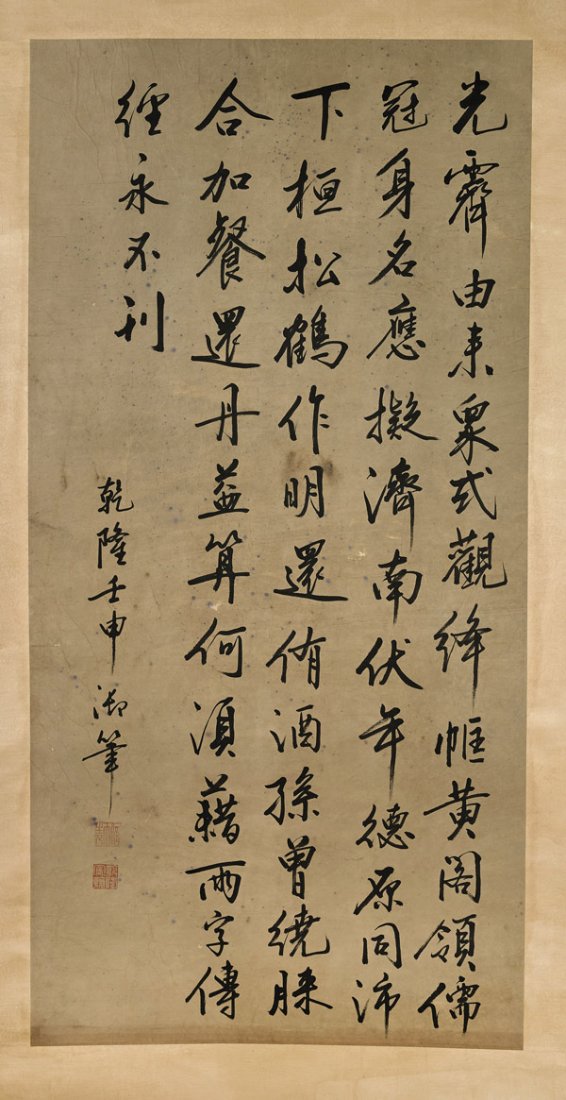 光霽由来衆式觀絳帷黄阁領儒
冠身名應擬濟南伏年德原同沛
下桓松鶴作明還侑酒孫曾繞膝
合加餐還丹益算何須藉兩字傳
經永不刊
乾隆壬申御筆